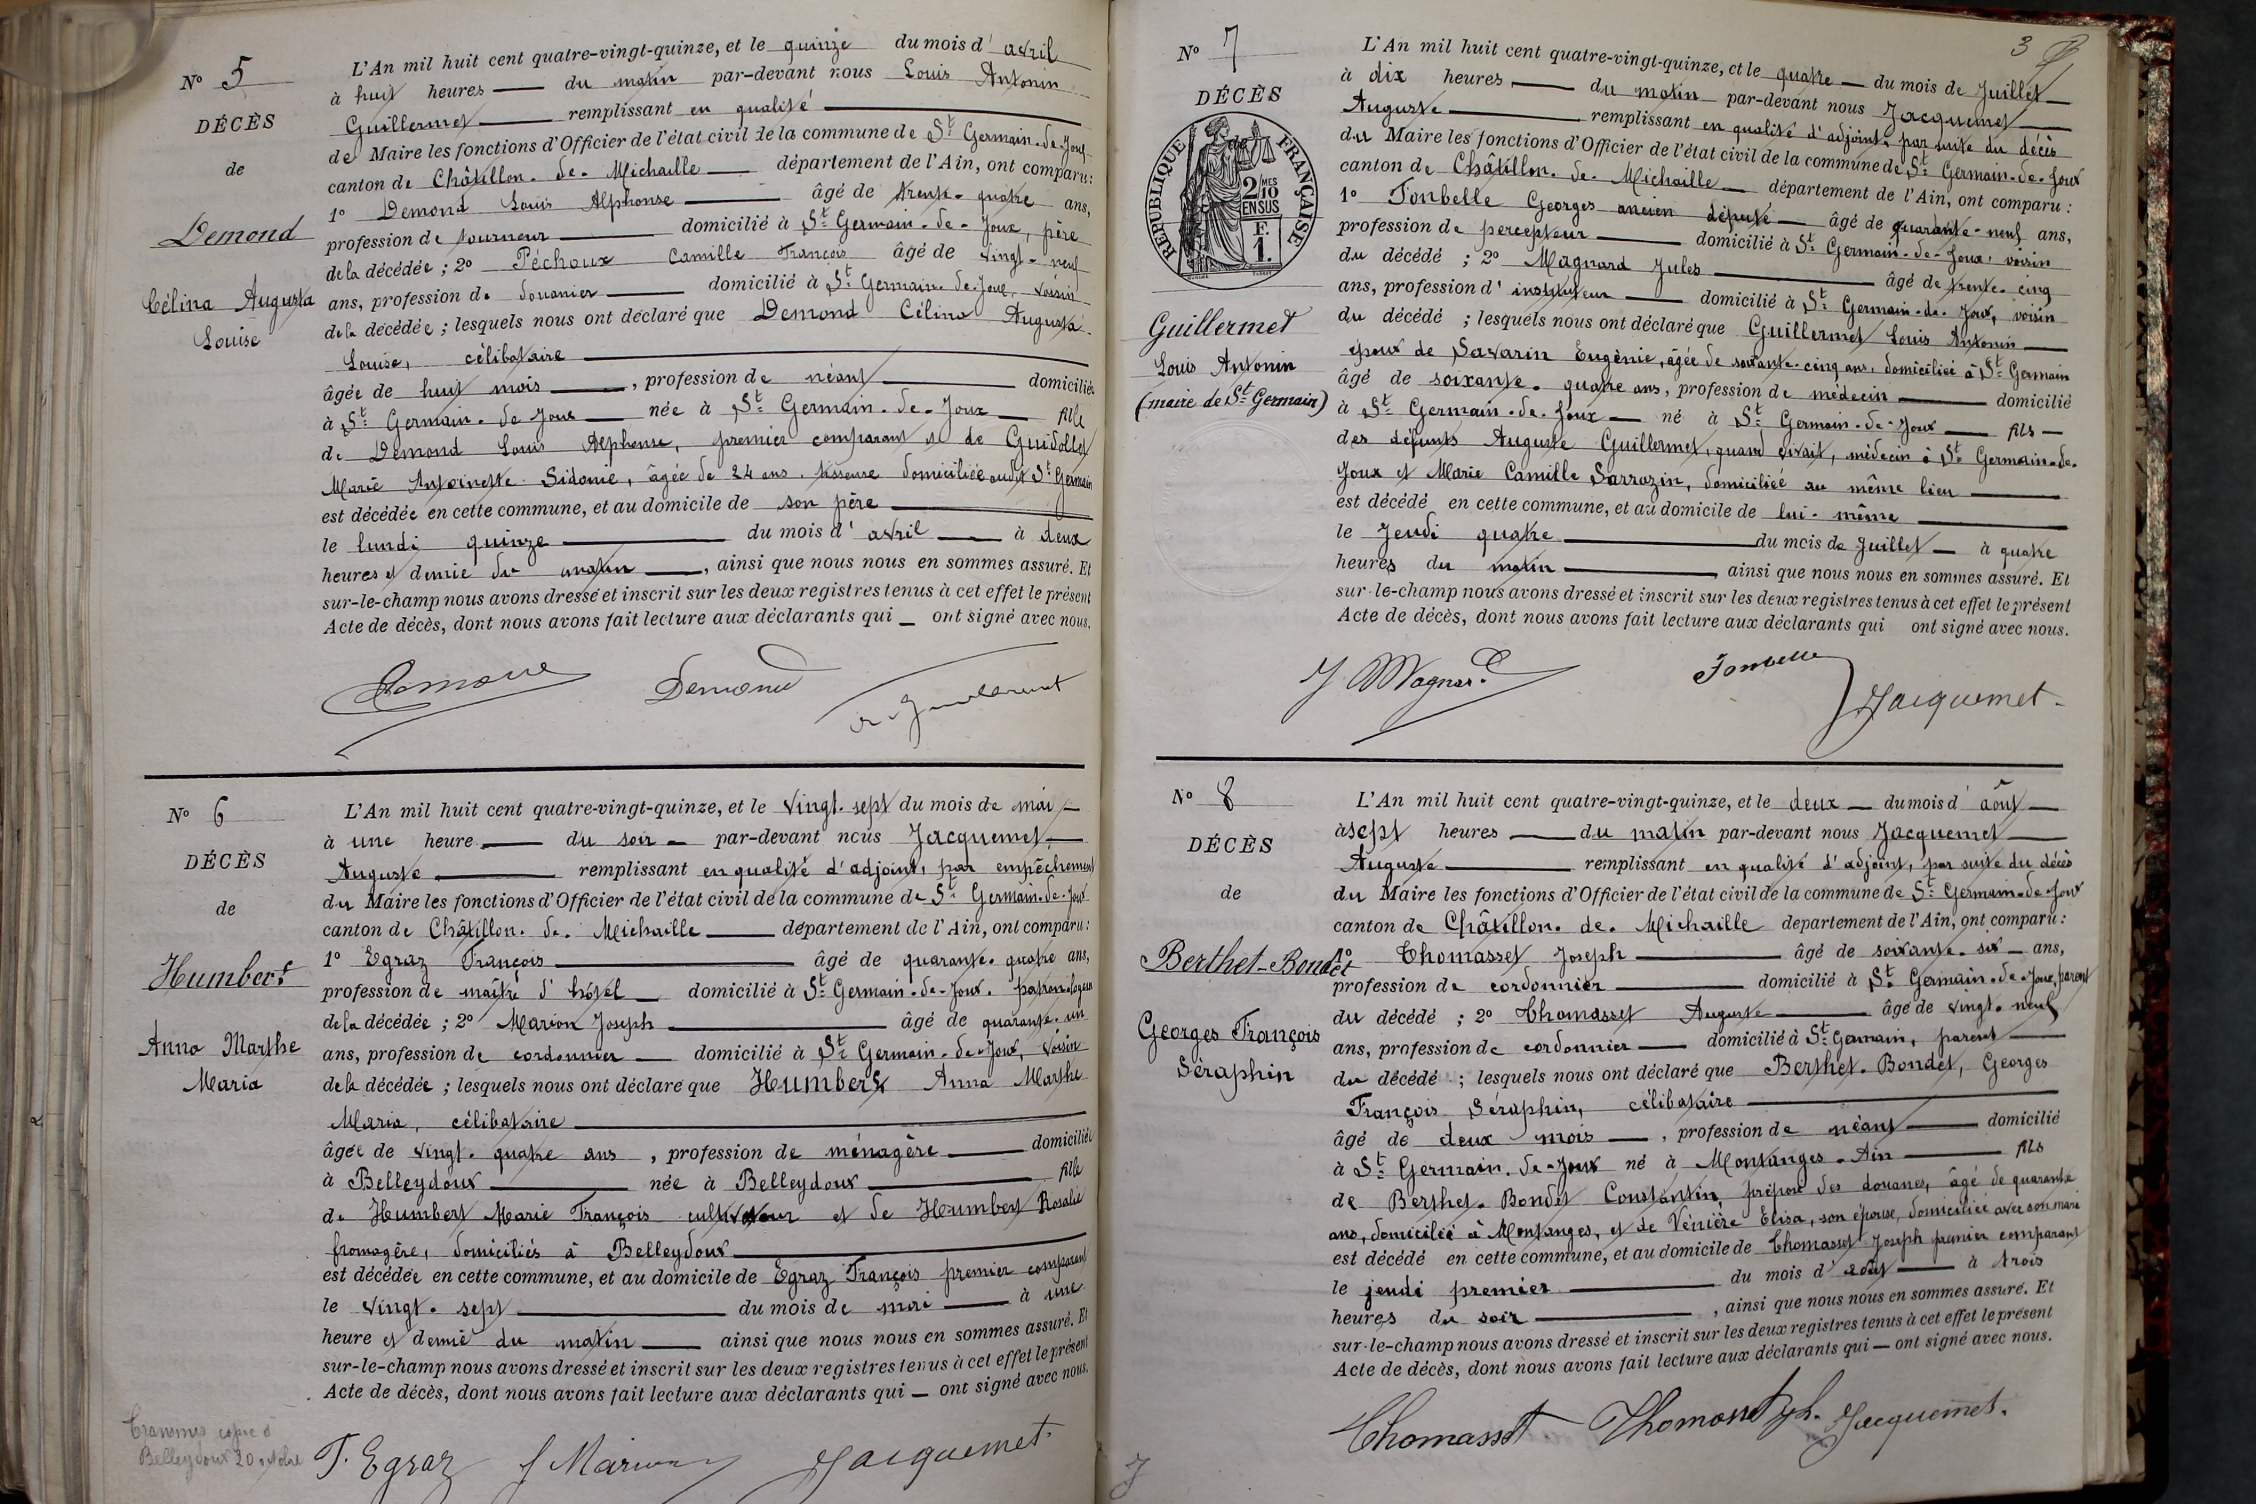 N° 5
DÉCÈS
de
Demond
Célina Augusta
Louise
L'An mil huit cent quatre-vingt-quinze, et le quinze du mois d' avril
à huit heures — du matin par-devant nous Louis Antonin
Guillermet — remplissant en qualité —
de Maire les fonctions d'Officier de l'état civil de la commune de St Germain-de-Joux
canton de Châtillon-de-Michaille — département de l'Ain, ont comparu:
1° Demond Louis Alphonse — âgé de trente-quatre ans,
profession de tourneur — domicilié à St Germain-de-Joux, père
de la décédée ; 2° Péchoux Camille François âgé de vingt-neuf
ans, profession de douanier — domicilié à St Germain-de-Joux, voisin
de la décédée ; lesquels nous ont déclaré que Demond Célina Augusta
Louise, célibataire —
âgée de huit mois —, profession de néant — domiciliée
à St Germain-de-Joux — née à St Germain-de-Joux — fille
de Demond Louis Alphonse, premier comparant et de Guidollet
Marie Antoinette Sidonie, âgée de 24 ans, domiciliée audit St Germain
est décédée en cette commune, et au domicile de son père —
le lundi quinze — du mois d' avril — à deux
heures et demie du matin —, ainsi que nous nous en sommes assuré. Et
sur-le-champ nous avons dressé et inscrit sur les deux registres tenus à cet effet le présent
Acte de décès, dont nous avons fait lecture aux déclarants qui — ont signé avec nous.
Demond
N° 6
DÉCÈS
de
Humbert
Anna Marthe
Maria
L'An mil huit cent quatre-vingt-quinze, et le vingt-sept du mois de mai —
à une heure — du soir — par-devant nous Jacquemet —
Auguste — remplissant en qualité d'adjoint, par empêchement
du Maire les fonctions d'Officier de l'état civil de la commune de St Germain-de-Joux
canton de Châtillon-de-Michaille — département de l'Ain, ont comparu:
1° Egraz François — âgé de quarante-quatre ans,
profession de maître d'hôtel — domicilié à St Germain-de-Joux, patron-logeur
de la décédée ; 2° Marion Joseph — âgé de quarante-un
ans, profession de cordonnier — domicilié à St Germain-de-Joux, voisin
de la décédée ; lesquels nous ont déclaré que Humbert Anna Marthe
Maria, célibataire —
âgée de vingt-quatre ans , profession de ménagère — domiciliée
à Belleydoux — née à Belleydoux — fille
de Humbert Marie François cultivateur et de Humbert Rosalie
fromagère, domiciliés à Belleydoux —
est décédée en cette commune, et au domicile de Egraz François premier comparant
le vingt-sept — du mois de mai — à une
heure et demie du matin — ainsi que nous nous en sommes assuré. Et
sur-le-champ nous avons dressé et inscrit sur les deux registres tenus à cet effet le présent
Acte de décès, dont nous avons fait lecture aux déclarants qui — ont signé avec nous.
Transmis copie à
Belleydoux 20 octobre
F. Egraz J Marion Jacquemet
3
N° 7
DÉCÈS
de
RÉPUBLIQUE FRANÇAISE
2/10 MES
EN SUS
F.
1.
Guillermet
Louis Antonin
(maire de St Germain)
L'An mil huit cent quatre-vingt-quinze, et le quatre — du mois de Juillet —
à dix heures, — du matin par-devant nous Jacquemet —
Auguste — remplissant en qualité d'adjoint, par suite du décès
du Maire les fonctions d'Officier de l'état civil de la commune de St Germain-de-Joux
canton de Châtillon-de-Michaille — département de l'Ain, ont comparu :
1° Tonbelle Georges ancien député — âgé de quarante-neuf ans,
profession de percepteur — domicilié à St Germain-de-Joux, voisin
du décédé ; 2° Magnard Jules — âgé de trente-cinq
ans, profession d' instituteur — domicilié à St Germain-de-Joux, voisin
du décédé ; lesquels nous ont déclaré que Guillermet Louis Antonin —
époux de Savarin Eugènie, âgée de soixante-cinq ans, domiciliée à St Germain
âgé de soixante-quatre ans, profession de médecin — domicilié
à St Germain-de-Joux — né à St Germain-de-Joux — fils —
des défunts Auguste Guillermet, quand vivait, médecin à St Germain-de-
Joux et Marie Camille Sarrazin, domiciliée au même lieu —
est décédé en cette commune, et au domicile de lui-même —
le Jeudi quatre — du mois de Juillet — à quatre
heures du matin — ainsi que nous nous en sommes assuré. Et
sur-le-champ nous avons dressé et inscrit sur les deux registres tenus à cet effet le présent
Acte de décès, dont nous avons fait lecture aux déclarants qui ont signé avec nous.
J Magnard Jacquemet
N° 8
DÉCÈS
de
Berthet-Bondet
Georges François
Séraphin
L'An mil huit cent quatre-vingt-quinze, et le deux — du mois d' août —
à sept heures — du matin par-devant nous Jacquemet —
Auguste — remplissant en qualité d'adjoint, par suite du décès
du Maire les fonctions d'Officier de l'état civil de la commune de St Germain-de-Joux
canton de Châtillon-de-Michaille département de l'Ain, ont comparu :
1° Thomasset Joseph — âgé de soixante-six — ans,
profession de cordonnier — domicilié à St Germain-de-Joux, parent
du décédé ; 2° Thomasset Auguste — âgé de vingt-neuf
ans, profession de cordonnier — domicilié à St Germain, parent —
du décédé ; lesquels nous ont déclaré que Berthet-Bondet, Georges
François Séraphin, célibataire —
âgé de deux mois — , profession de néant — domicilié
à St Germain-de-Joux né à Montanges-Ain — fils
de Berthet-Bondet Constantin, préposé des douanes, âgé de quarante
ans, domicilié à Montanges, et de Vénière Élisa, son épouse, domiciliée avec son mari
est décédé en cette commune, et au domicile de Thomasset Joseph premier comparant
le jeudi premier — du mois d' août — à trois
heures du soir —, ainsi que nous nous en sommes assuré. Et
sur-le-champ nous avons dressé et inscrit sur les deux registres tenus à cet effet le présent
Acte de décès, dont nous avons fait lecture aux déclarants qui — ont signé avec nous.
Thomasset Jacquemet.